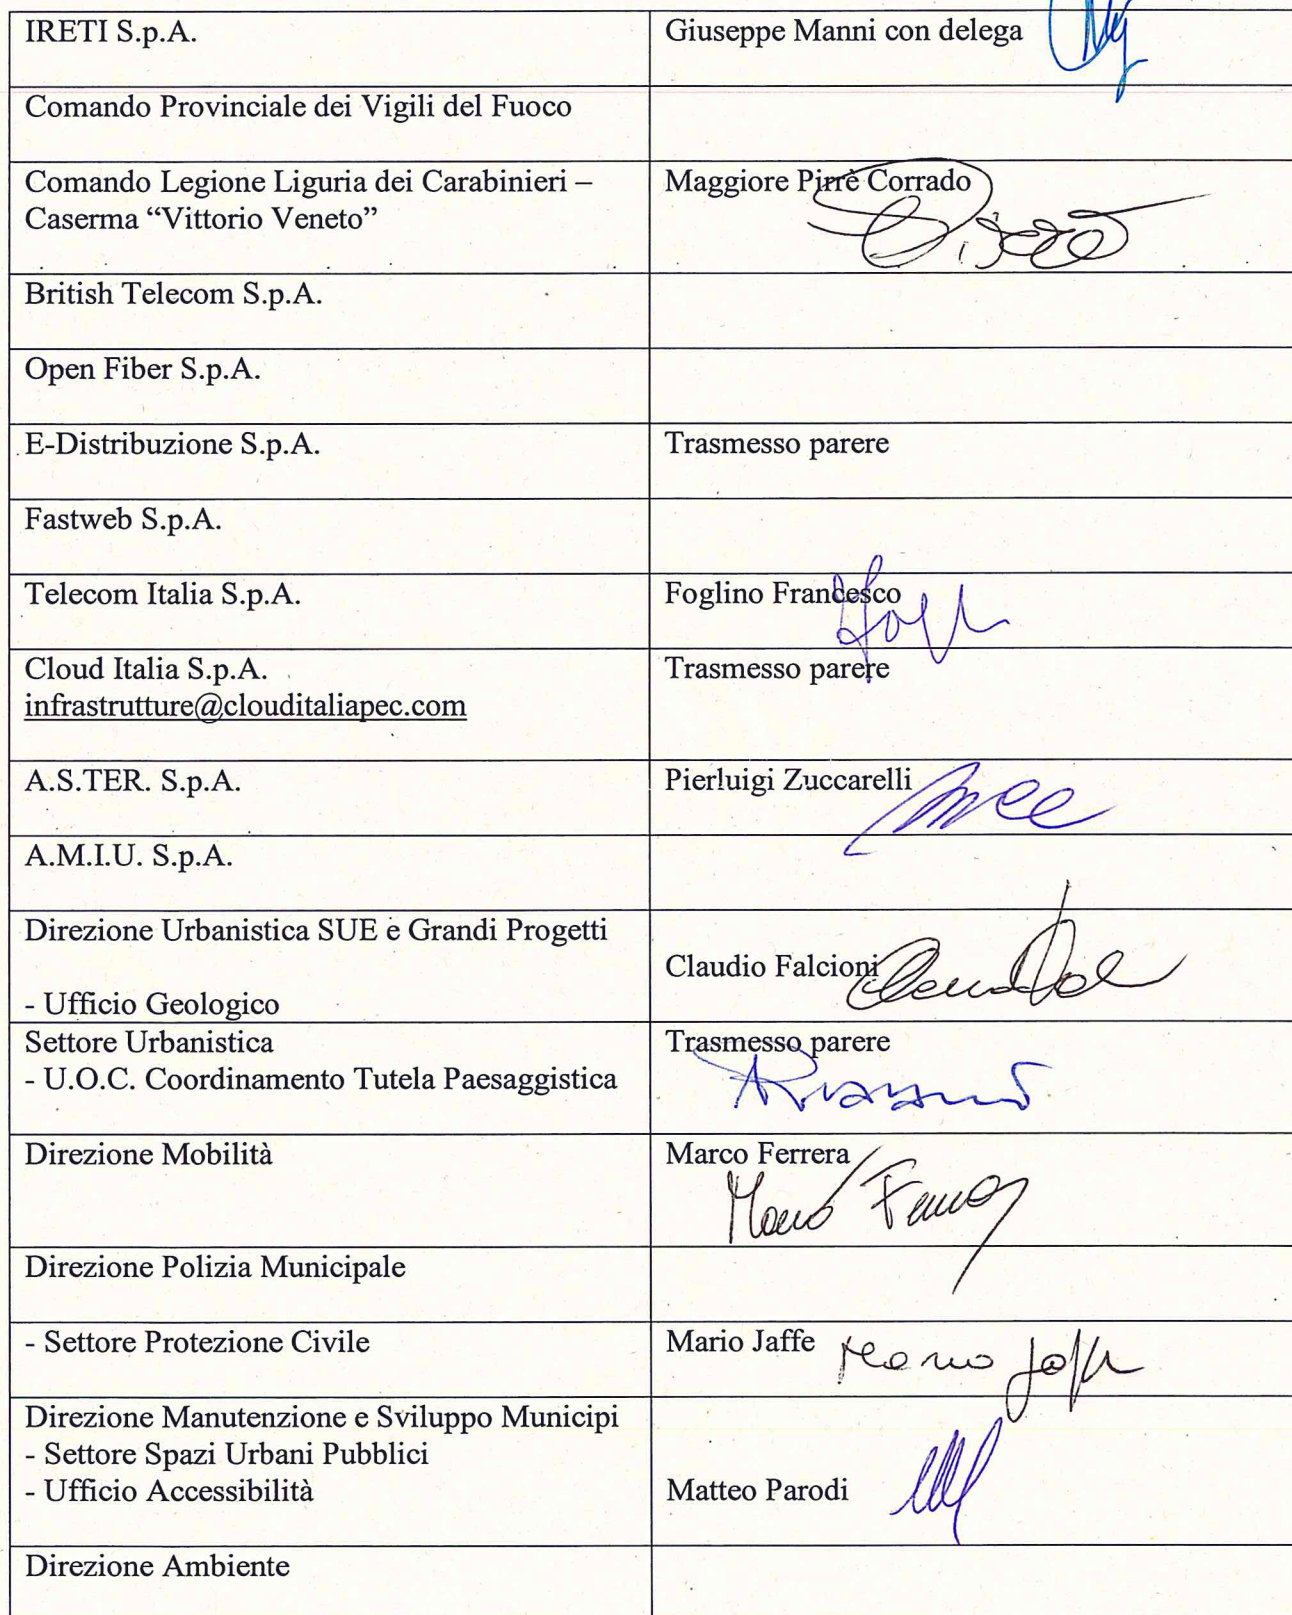 IRETI S.p.A.
Giuseppe Manni con delega
Comando Provinciale dei Vigili del Fuoco
Comando Legione Liguria dei Carabinieri –
Caserma “Vittorio Veneto”
Maggiore Pirrè Corrado
British Telecom S.p.A.
Open Fiber S.p.A.
E-Distribuzione S.p.A.
Trasmesso parere
Fastweb S.p.A.
Telecom Italia S.p.A.
Foglino Francesco
Cloud Italia S.p.A.
infrastrutture@clouditaliapec.com
Trasmesso parere
A.S.TER. S.p.A.
Pierluigi Zuccarelli
A.M.I.U. S.p.A.
Direzione Urbanistica SUE e Grandi Progetti
- Ufficio Geologico
Claudio Falcioni
Settore Urbanistica
- U.O.C. Coordinamento Tutela Paesaggistica
Trasmesso parere
Direzione Mobilità
Marco Ferrera
Direzione Polizia Municipale
- Settore Protezione Civile
Mario Jaffe
Mario Jaffe
Direzione Manutenzione e Sviluppo Municipi
- Settore Spazi Urbani Pubblici
- Ufficio Accessibilità
Matteo Parodi
Direzione Ambiente